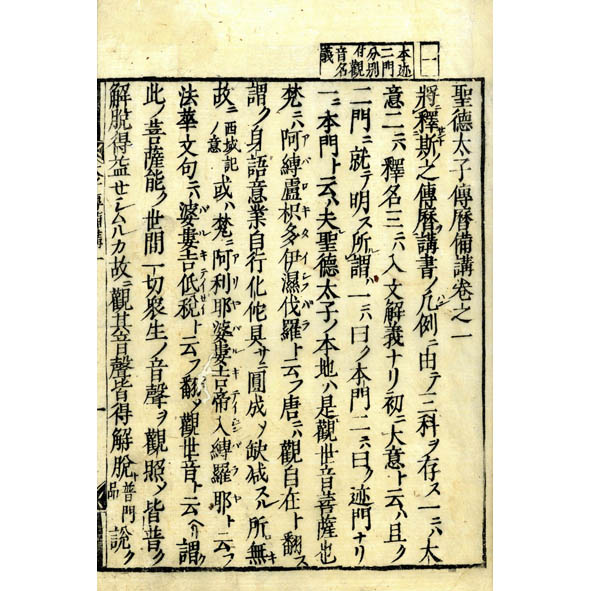 一
本迹
二門
分別
付觀
音名
義
聖德太子傳曆備講卷之一
將ニ釋ント斯之傳曆講書ノ凡例ニ由テ三科ヲ存ス一ニハ大
意二ニハ釋名三ニハ入文解義ナリ初ニ大意ト云ハ且ク
二門ニ就テ明ス所謂一ニハ曰ク本門二ニハ曰ク迹門ナリ
一ニ本門ト云ハ夫聖德太子ノ本地ハ是觀世音菩薩也
梵ニハ阿縛盧枳多伊濕伐羅ト云フ唐ニハ觀自在ト翻ス
謂ク身語意業自行化他具サニ圓成〆缺減スル所無キ
故ニ西域記ノ意或ハ梵ニ阿利耶婆婁吉帝入縛羅耶ト云フ
法華文句ニハ婆婁吉低稅ト云フ翻〆觀世音ト云ヘリ謂ク
此ノ菩薩能ク世間一切衆生ノ音聲ヲ觀照〆皆普ク
解脫得益せシムルカ故ニ觀其音聲皆得解脫ト普門品說ク